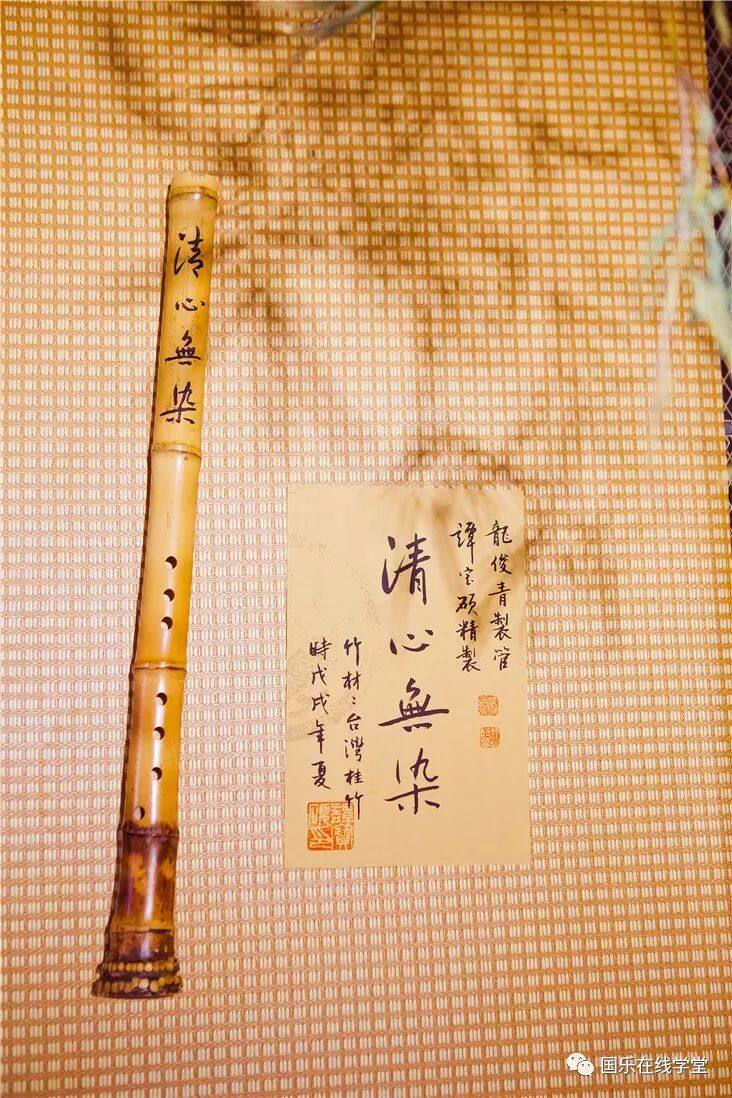 清心無染
龍俊青製管
譚宝硕精製
清心無染
竹材：台灣桂竹
時戊戌年夏
国乐在线学堂